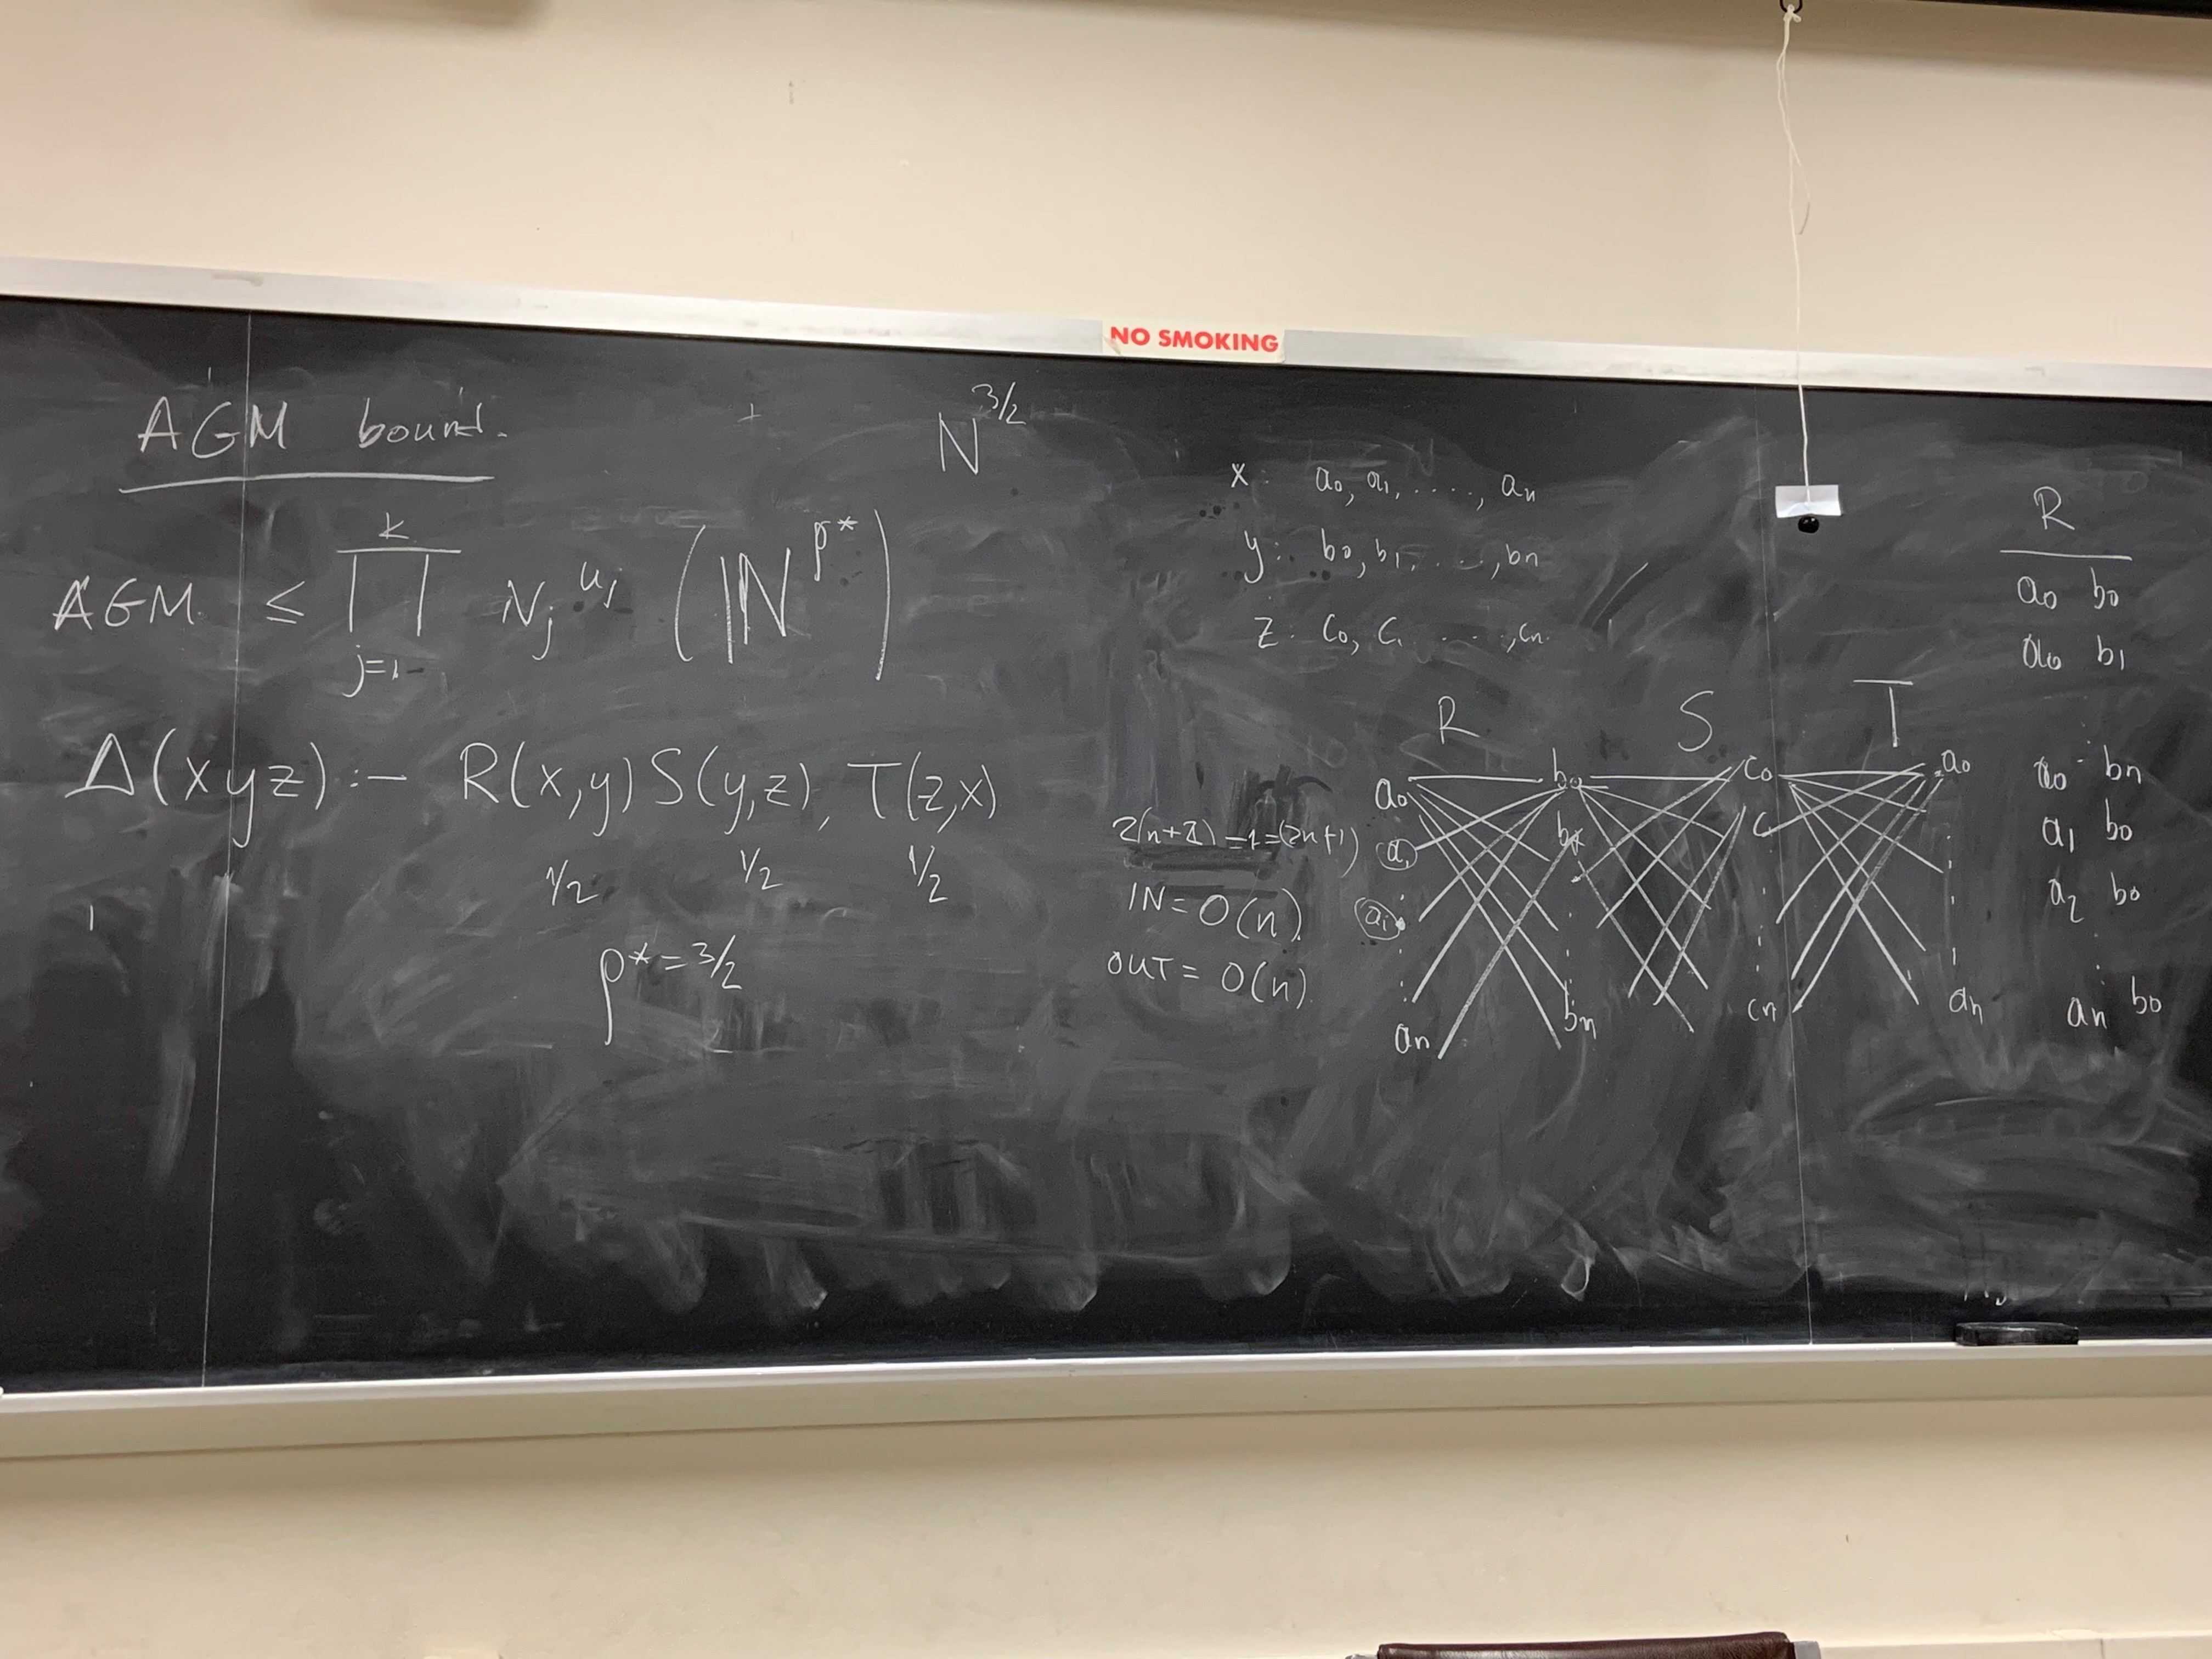 NO SMOKING
AGM bound.
N^{3/2}
AGM ≤ ∏_{j=1}^{k} N_j^{u_j} (|N^{ρ*})
Δ(xyz) :- R(x,y) S(y,z), T(z,x)
1/2 1/2 1/2
ρ* = 3/2
x: a₀, a₁, ...., aₙ
y: b₀, b₁, ...., bₙ
z: c₀, c₁ ...., cₙ
2(n+1) -1 = (2n+1)
IN = O(n)
OUT = O(n)
R S T
a₀ b₀ c₀ a₀
a₁ b₁ c₁
aᵢ
aₙ bₙ cₙ aₙ
R
a₀ b₀
a₀ b₁
a₀ bₙ
a₁ b₀
a₂ b₀
aₙ b₀